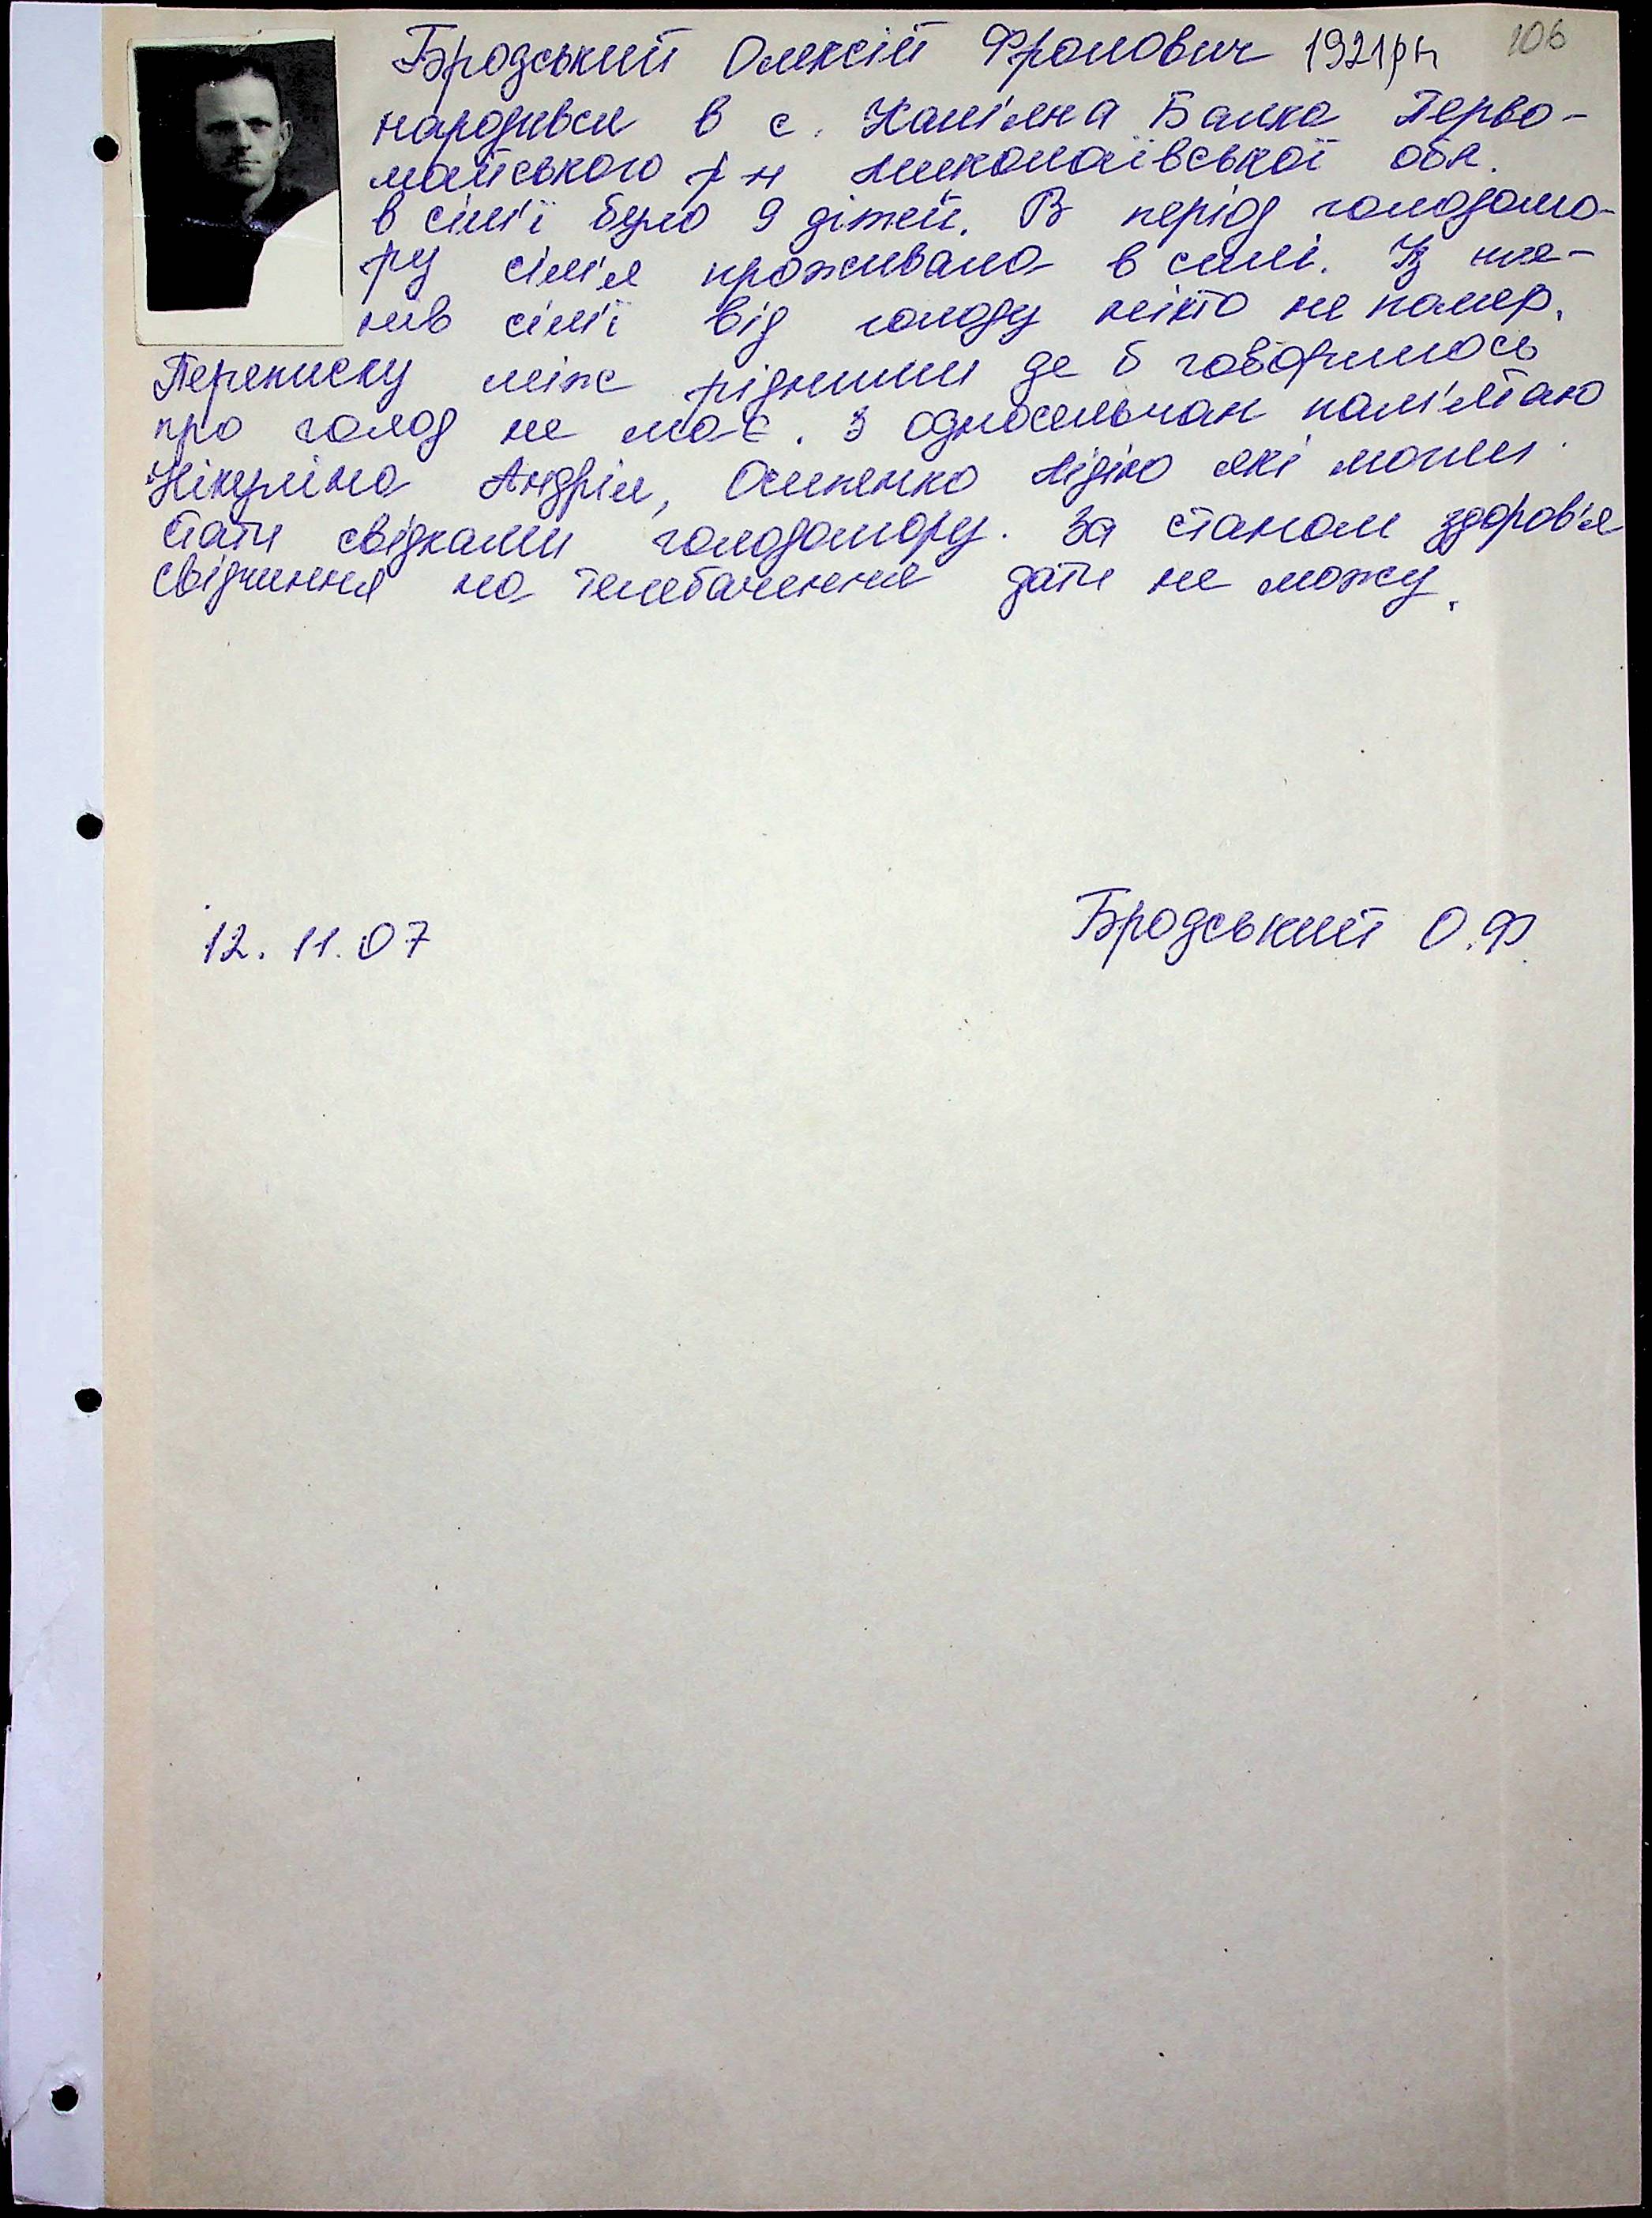 Бродський Олексій Фролович 1921рн 106
народився в с. Кам'яна Балка Перво-
майського р-н Миколаївської обл.
в сім'ї було 9 дітей. В період голодомо-
ру сім'я проживала в селі. Із чле-
нів сім'ї від голоду ніхто не помер.
Переписку між рідними де б говорилось
про голод не має. З односельчан пам'ятаю
Нікуліна Андрія, Осипенко Лідію які могли
стати свідками голодомору. За станом здоров'я
свідчення на телебачення дати не можу.
12. 11. 07 Бродський О.Ф.